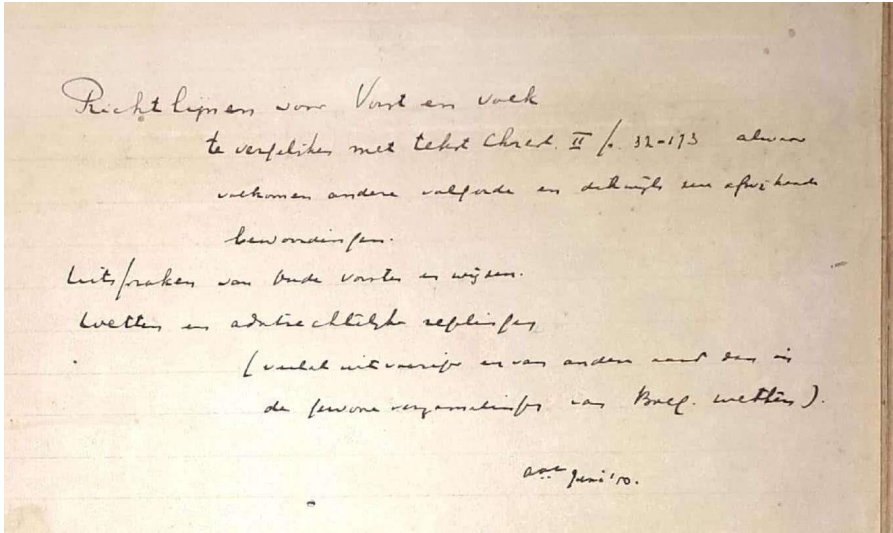 Richtlijnen voor Vorst en volk
te vergelijken met tekst Chrest. II p. 32-173 alwaar
volkomen andere volgorde en dikwijls een afwijkende
bewoordingen.
Uitspraken van Oude vorsten en wijzen.
Wetten en adatrechtelijke regelingen
(veelal uitvoeriger en van andere aard dan in
de gewone verzamelingen van Boeg. wetten).
Juni '50.